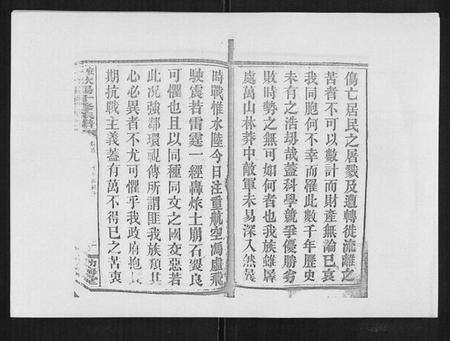 傷亡居民之屠戮及遭轉徙流離之
苦者不可以數計而財產無論已哀
我同胞何不幸而罹此數千年歷史
未有之浩刼哉蓋科學競爭優勝劣
敗時勢之無可如何者也我族雖孱
處萬山林莽中敵軍未易深入然
時戰惟水陸今日注重航空馮虛飛
駛震若雷霆一經轟炸土崩石裂良
可懼也且以同種同文之國交惡若
此况強鄰環視傳所謂匪我族類其
心必異者不尤可懼乎我政府抱
期抗戰主義蓋有萬不得已之苦衷